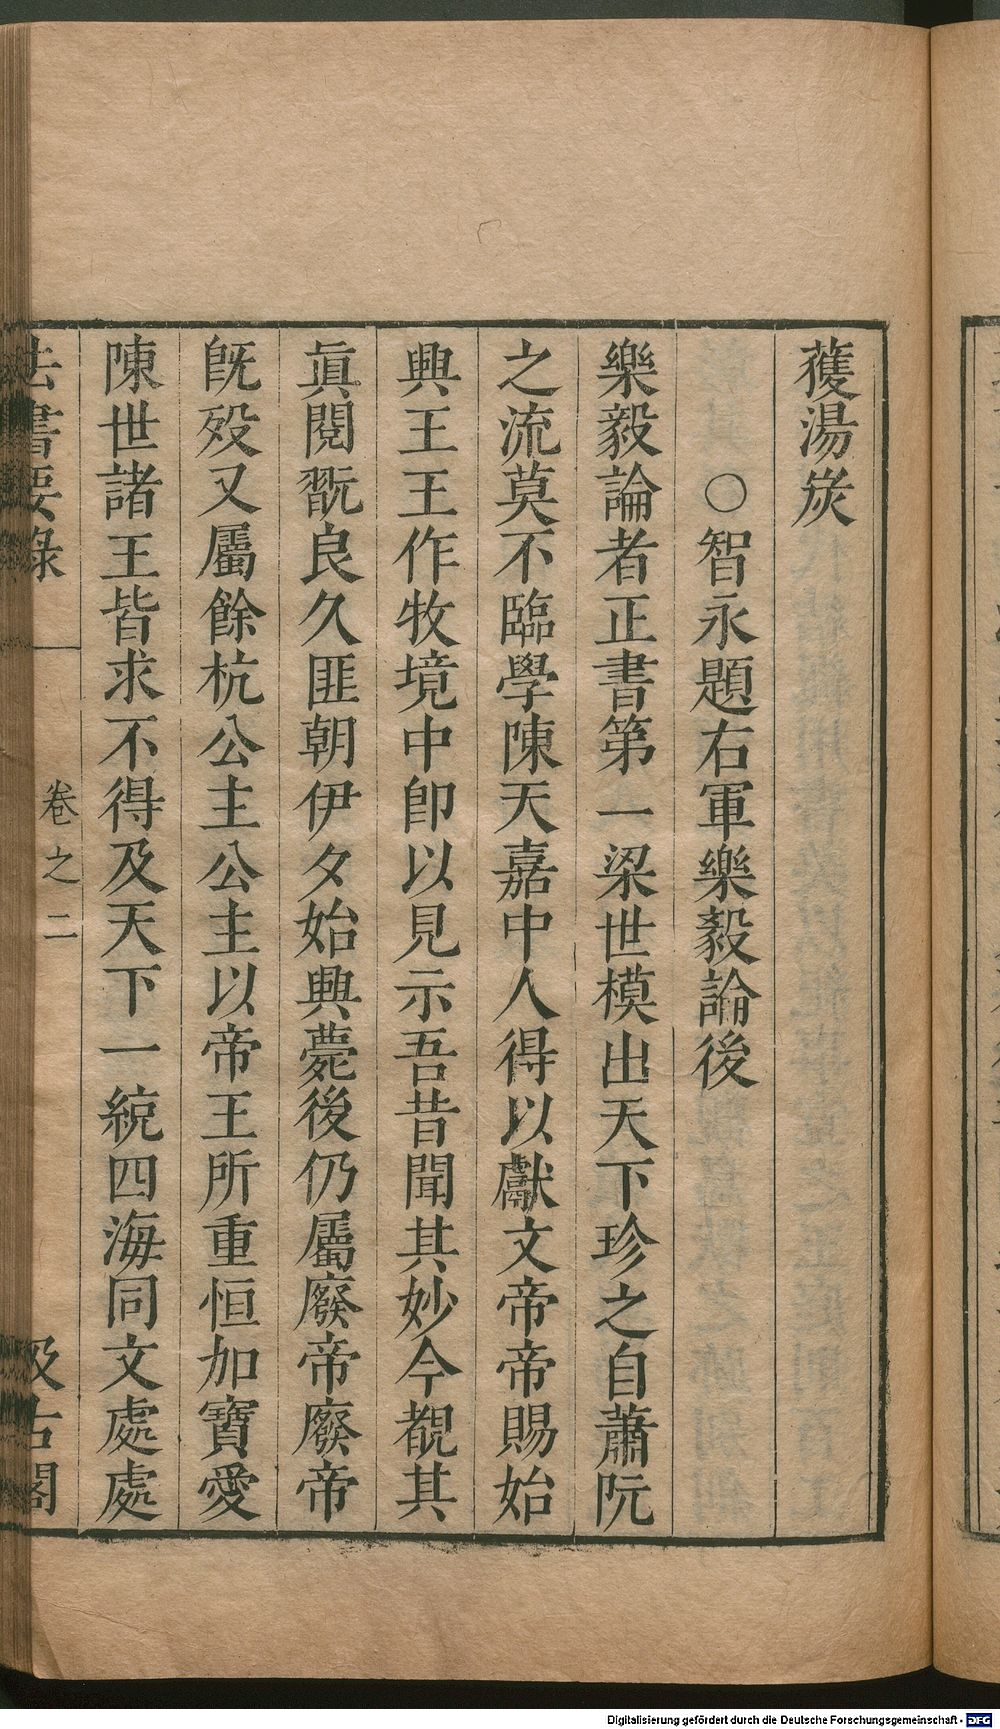 蒦湯炭
○智永題右軍樂毅論後
樂毅論者正書第一梁世模出天下珍之自蕭阮
之流莫不臨學陳天嘉中人得以獻文帝帝賜始
興王王作牧境中卽以見示吾昔聞其妙今覩其
眞閱翫良久匪朝伊夕始興薨後仍屬廢帝廢帝
旣歿又屬餘杭公主公主以帝王所重恒加寶愛
陳世諸王皆求不得及天下一統四海同文處處
法書要錄 卷之二 汲古閣
Digitalisierung gefördert durch die Deutsche Forschungsgemeinschaft - DFG